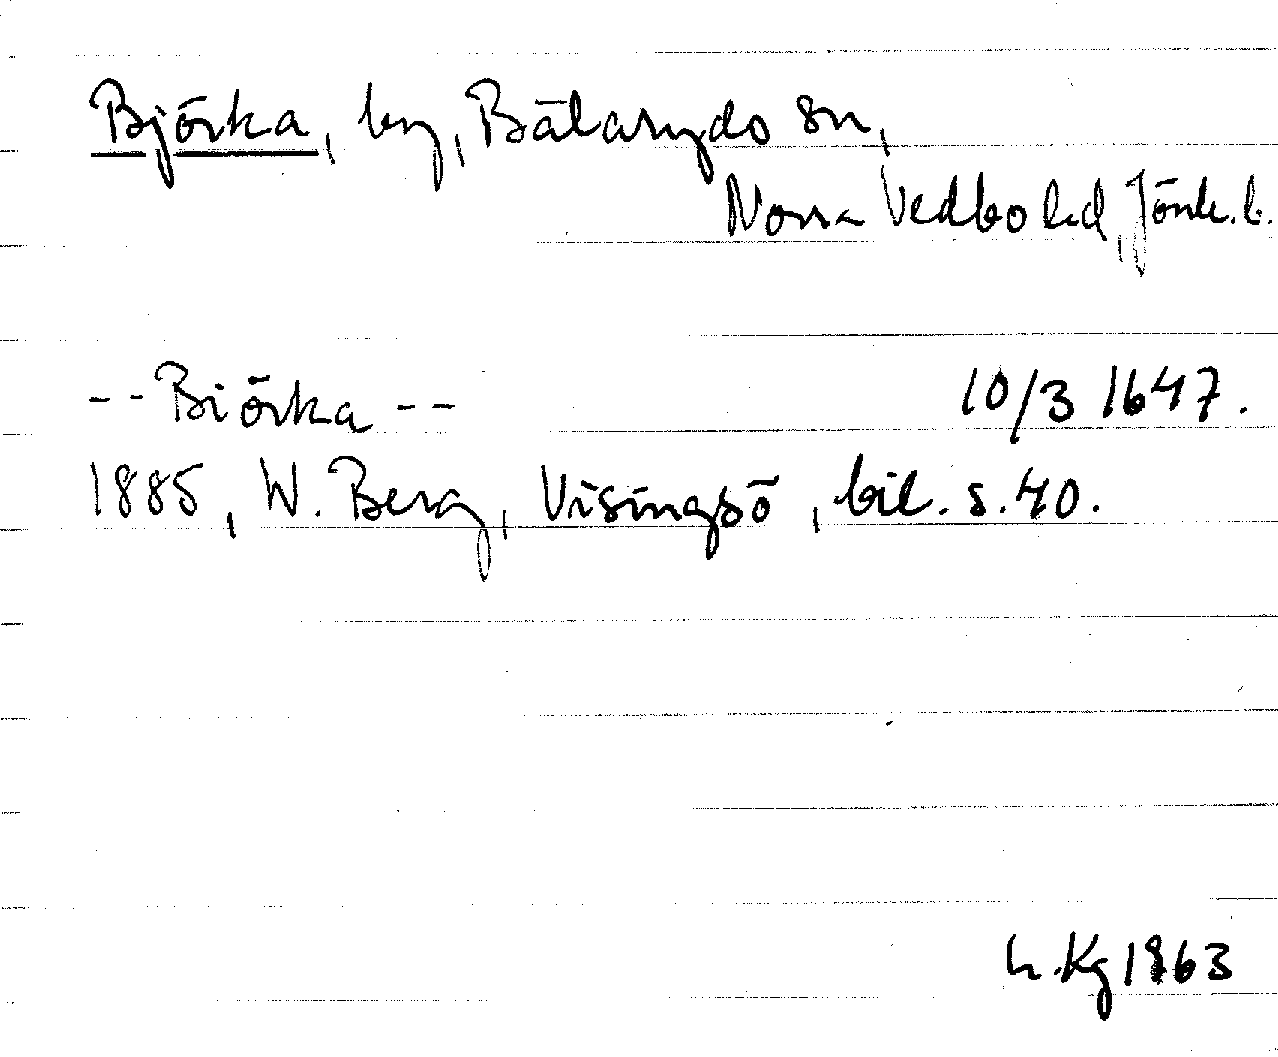 Björka, by, Bälaryds sn,
Norra Vedbo hd, Jönk. l.
-- Biörka -- 10/3 1647.
1885, W. Berg, Visingsö, bil. s. 40.
Kg 1963